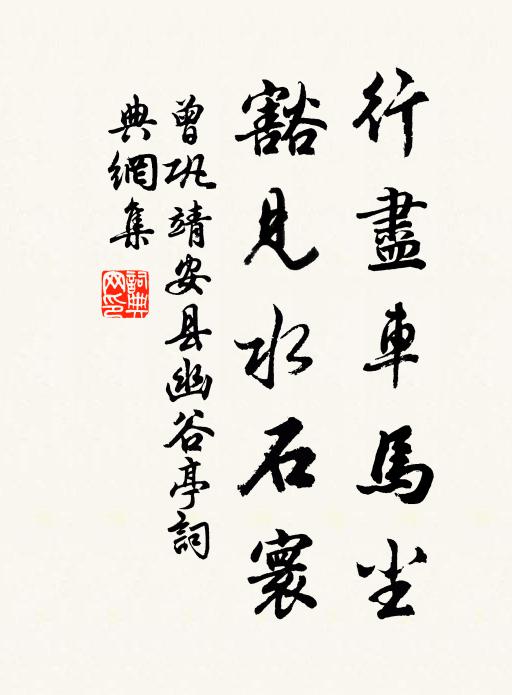 行盡車馬尘
豁見水石寰
曾巩靖安县幽谷亭詞
典網集
詞典网印